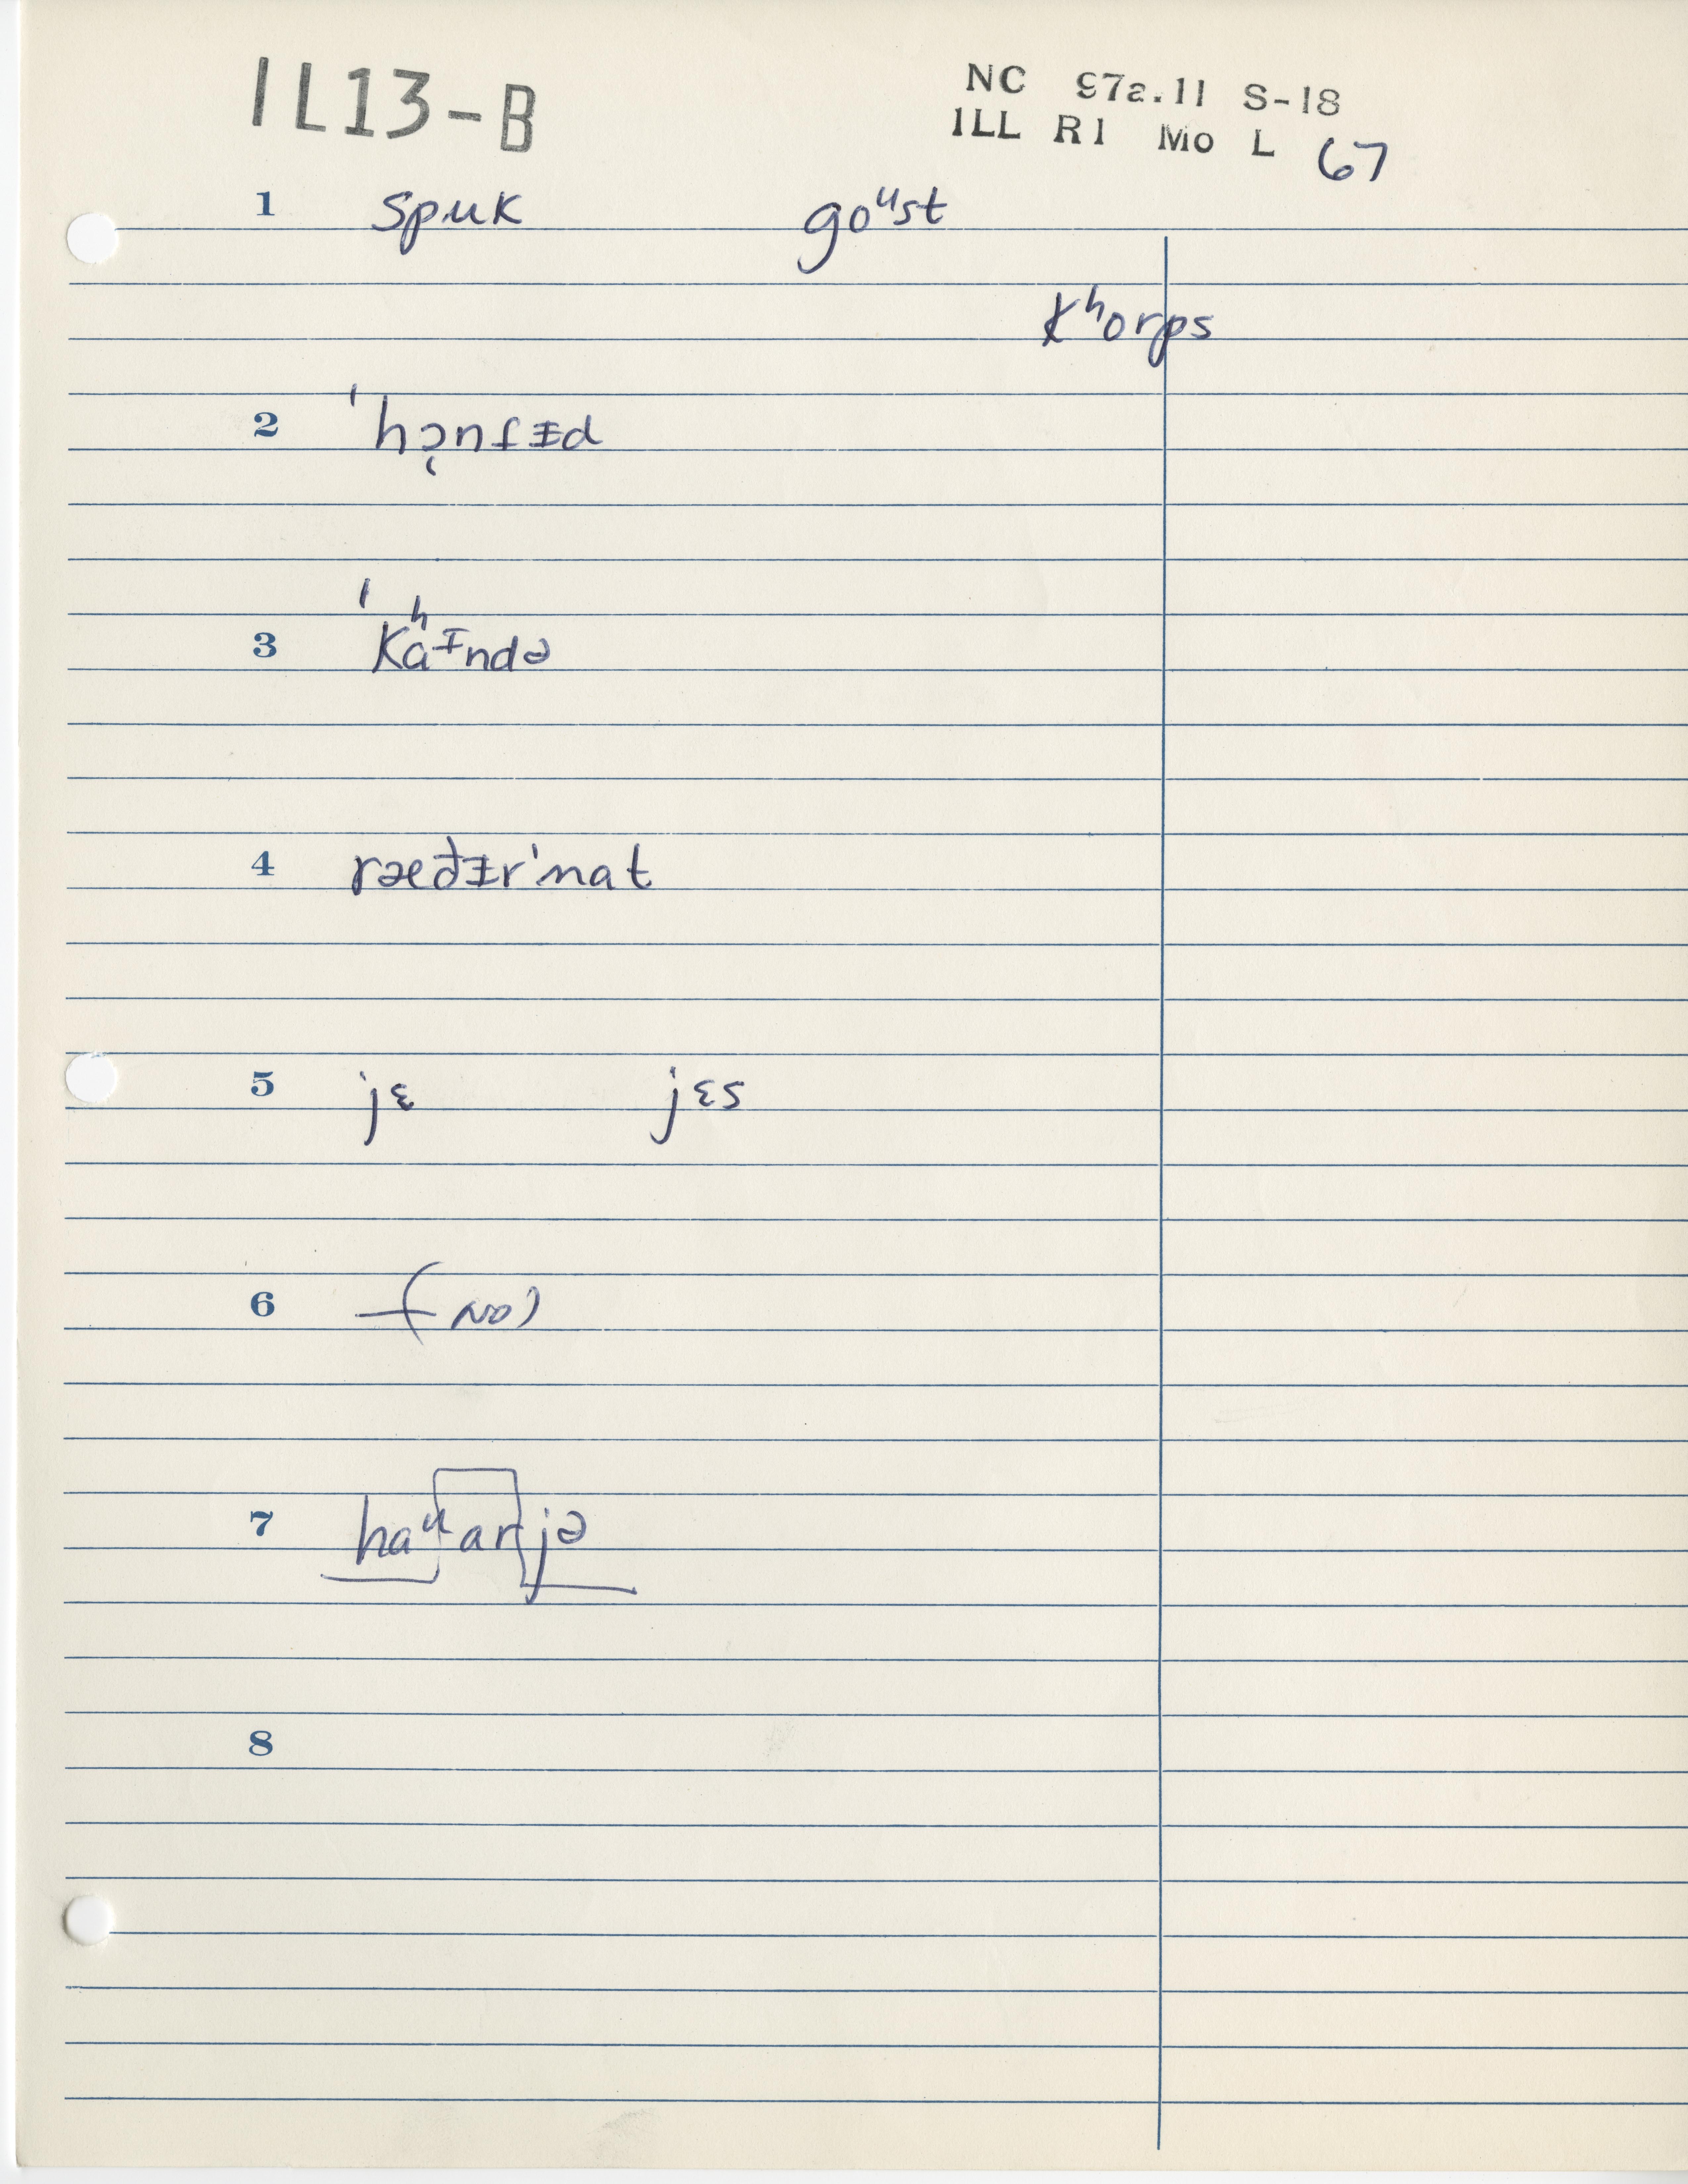 IL13-B
NC 97a.11 S-18
ILL R1 Mo L 67
1 spuk goᵘst
kʰorps
2 ˈhɔ̜nfᵻd
3 ˈkʰaᶧndə
4 ræðᵻrˈnat
5 jɛ jɛs
6 —(NO)
7 haᵘ ar jə
8